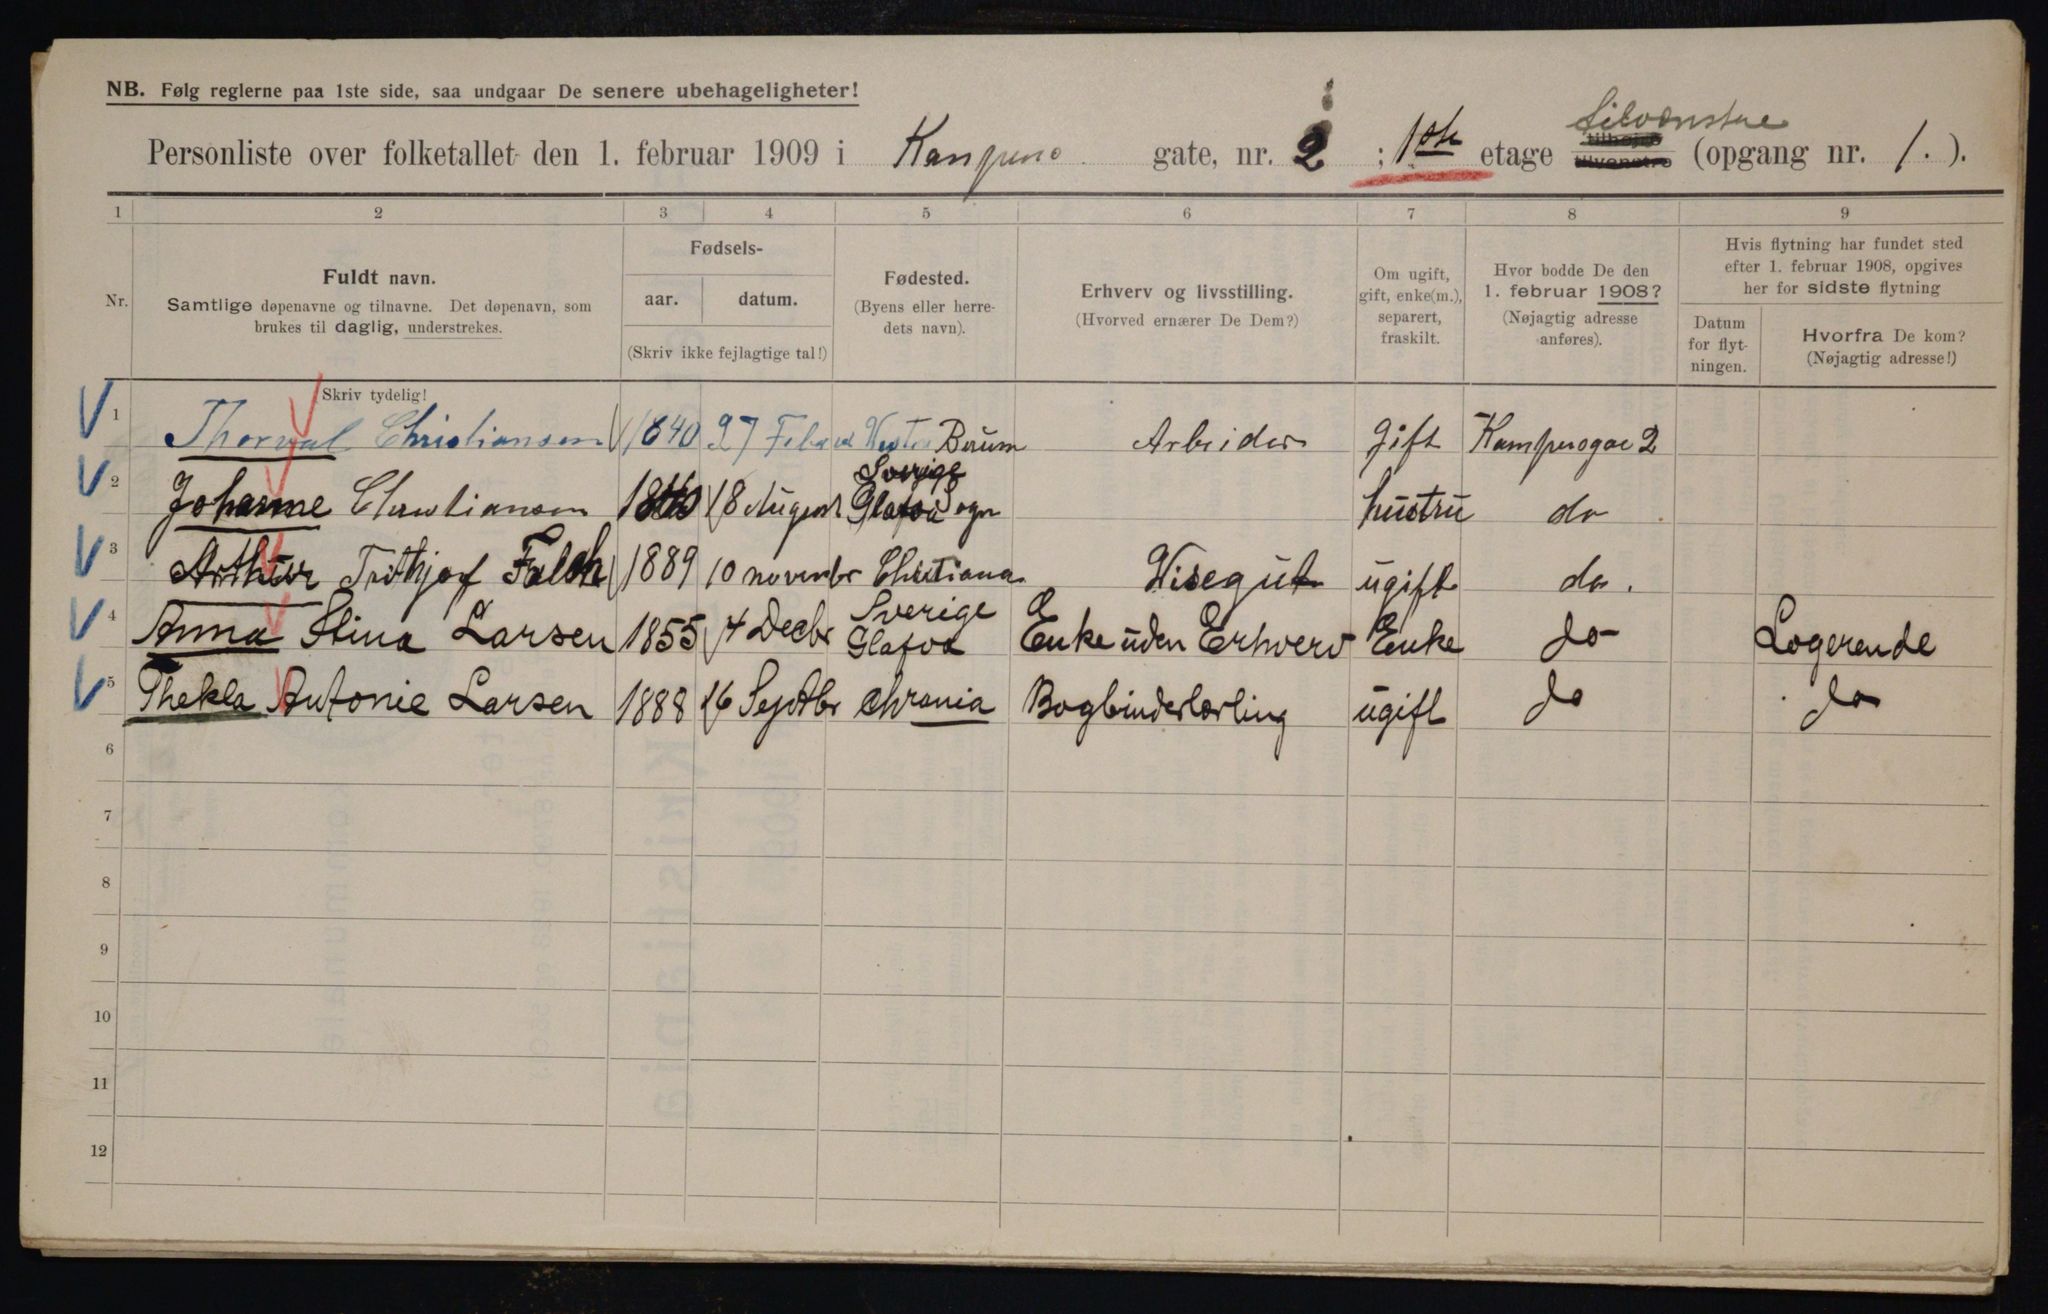 NB. Følg reglerne paa 1ste side, saa undgaar De senere ubehageligheter!
Personliste over folketallet den 1. februar 1909 i Kampens gate, nr. 2 ; 1ste etage tilhøjre tilvenstre tilvenstre (opgang nr. 1. ).
1 2 3 4 5 6 7 8 9
Nr.
Fuldt navn.
Samtlige døpenavne og tilnavne. Det døpenavn, som
brukes til daglig, understrekes.
Fødsels-
aar. datum.
(Skriv ikke fejlagtige tal!)
Fødested.
(Byens eller herre-
dets navn).
Erhverv og livsstilling.
(Hvorved ernærer De Dem?)
Om ugift,
gift, enke(m.),
separert,
fraskilt.
Hvor bodde De den
1. februar 1908?
(Nøjagtig adresse
anføres).
Hvis flytning har fundet sted
efter 1. februar 1908, opgives
her for sidste flytning
Datum
for flyt-
ningen.
Hvorfra De kom?
(Nøjagtig adresse!)
Skriv tydelig!
1 Thorval Christiansen 1840 27 Februar Vestre Bærum Arbeider Gift 2
2 Johanne Christiansen 18 August Sverige Glafva Sogn hustru do
3 Arthur Frithjof Falch 1889 10 novembr Christiana Visegut ugift do.
4 Anna Stina Larsen 1855 4 Decbr Sverige Glafva Enke uden Erhverv Enke do Logerende
5 Thekla Antonie Larsen 1888 16 Septbr Chrania Bogbinderlærling ugift do do
6
7
8
9
10
11
12